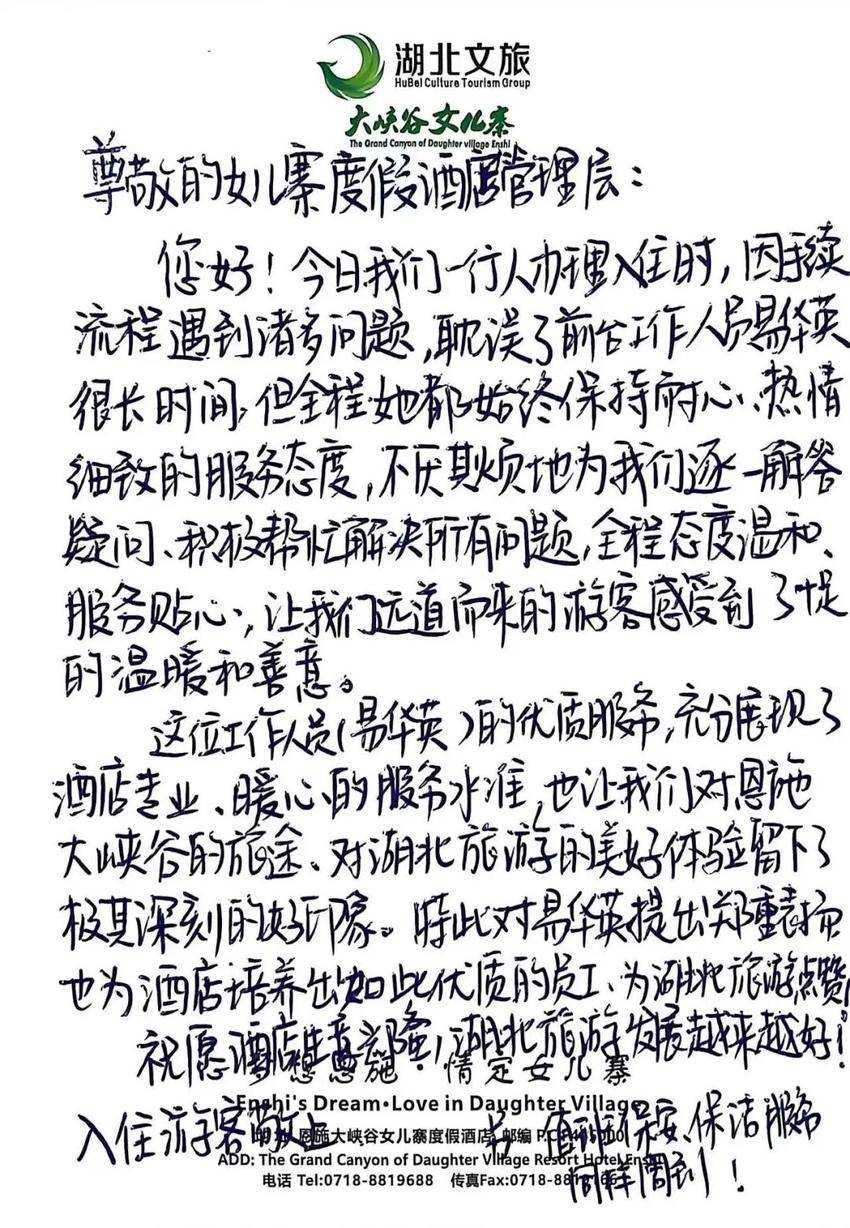 湖北文旅
HuBei Culture Tourism Group
大峡谷女儿寨
The Grand Canyon of Daughter village Enshi
尊敬的女儿寨度假酒店管理层：
您好！今日我们一行人办理入住时，因手续
流程遇到诸多问题，耽误了前台工作人员易华英
很长时间，但全程她都始终保持耐心、热情
细致的服务态度，不厌其烦地为我们逐一解答
疑问、积极帮忙解决所有问题，全程态度温和、
服务贴心，让我们远道而来的游客感受到了十足
的温暖和善意。
这位工作人员(易华英)的优质服务，充分展现了
酒店专业、暖心的服务水准，也让我们对恩施
大峡谷的旅途、对湖北旅游的美好体验留下了
极其深刻的好印象。特此对易华英提出郑重表扬
也为酒店培养出如此优质的员工、为湖北旅游点赞！
祝愿酒店生意兴隆，湖北旅游发展越来越好！
想恩施·情定女儿寨
Enshi's Dream·Love in Daughter Village
入住游客敬上 值班保安、保洁服务
同样周到！
恩施大峡谷女儿寨度假酒店 邮编 P.C:
ADD: The Grand Canyon of Daughter Village Resort Hotel Enshi
电话 Tel:0718-8819688 传真Fax:0718-881